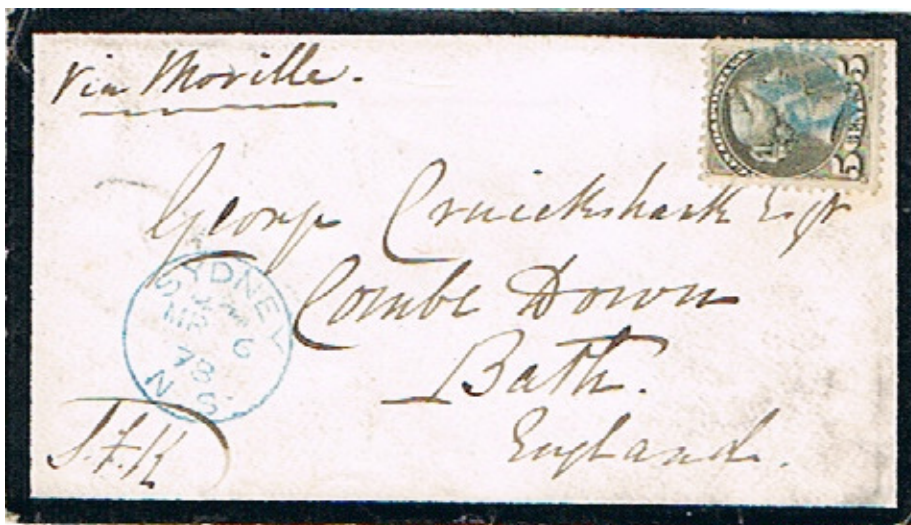 via Moville.
George Cruickshank Esqr
Combe Down
Bath.
England.
SYDNEY
MR 6
78
N.S.
5 CENTS 5